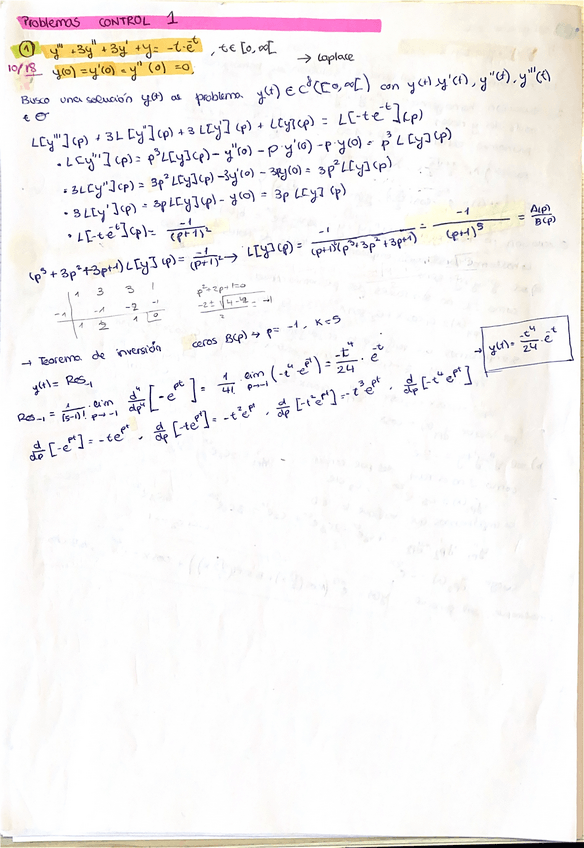 Problemas CONTROL 1
① y''' + 3y'' + 3y' + y = -t·e^-t , t ∈ [0, ∞[ → Laplace
10/18 y(0) = y'(0) = y''(0) = 0.
Busco una solución y(t) al problema y(t) ∈ C³([0, ∞[) con y(t), y'(t), y''(t), y'''(t)
∈ σ
L[y'''](p) + 3L[y''](p) + 3L[y'](p) + L[y](p) = L[-t e^-t](p)
• L[y'''](p) = p³L[y](p) - y''(0) - p·y'(0) - p·y(0) = p³ L[y](p)
• 3L[y''](p) = 3p²L[y](p) - 3y'(0) - 3py(0) = 3p²L[y](p)
• 3L[y'](p) = 3pL[y](p) - y(0) = 3p L[y](p)
• L[-t·e^-t](p) = -1/(p+1)²
(p³ + 3p² + 3p + 1) L[y](p) = -1/(p+1)² → L[y](p) = -1/((p+1)²(p³+3p²+3p+1)) = -1/(p+1)⁵ = A(p)/B(p)
1 3 3 1
-1 -1 -2 -1
1 2 1 0
p²+2p+1=0
→ Teorema de inversión ceros B(p) → p = -1, K = 5
y(t) = Res₋₁
Res₋₁ = 1/(5-1)! · lim p→-1 d⁴/dp⁴ [-e^pt] = 1/4! · lim p→-1 (-t⁴·e^pt) = -t⁴/24 · e^-t
→ y(t) = -t⁴/24 · e^-t
d/dp [-e^pt] = -te^pt, d/dp [-te^pt] = -t²e^pt, d/dp [-t²e^pt] = -t³e^pt, d/dp [-t⁴e^pt]